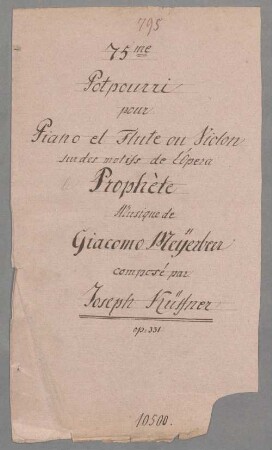 795
75me
Potpourri
pour
Piano et Flute ou Violon
sur des motifs de l'opera
Prophète
Musique de
Giacomo Meÿerbeer
composé par
Joseph Küffner
op. 331
10500.